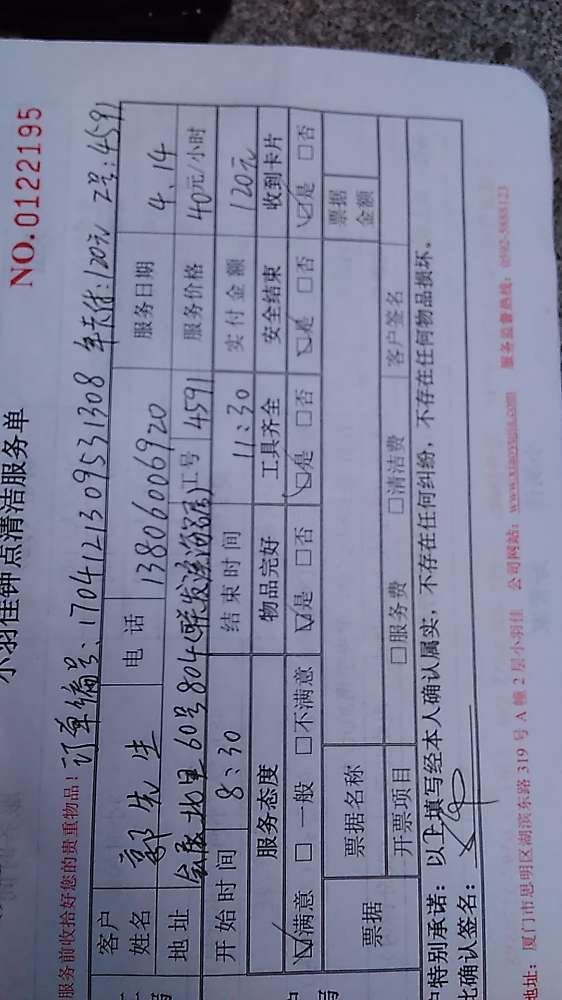 小羽佳钟点清洁服务单 NO.0122195
服务前收拾好您的贵重物品！ 订单编号：1704121309531308 120元 工号：4591
客户姓名 郭先生 电话 13806006920 服务日期 4.14
地址 会展北里60号804 工号 4591 服务价格 40元/小时
开始时间 8:30 结束时间 11:30 实付金额 120元
服务态度 物品完好 工具齐全 安全结束 收到卡片
☑满意 □一般 □不满意 ☑是 □否 ☑是 □否 ☑是 □否 ☑是 □否
票据 票据名称 票据金额
开票项目 □服务费 □清洁费 客户签名
户特别承诺：以上填写经本人确认属实，不存在任何纠纷，不存在任何物品损坏。
此确认签名：
地址：厦门市思明区湖滨东路319号A幢2层小羽佳 公司网站：www.xiaoyujia.com 服务监督热线：0592-5885123